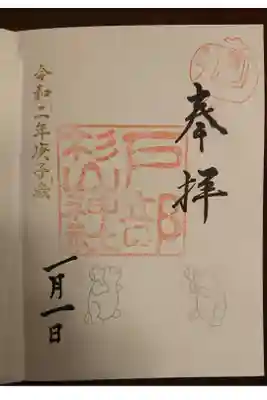 奉拝
戸部
杉山神社
令和二年庚子歳
一月一日